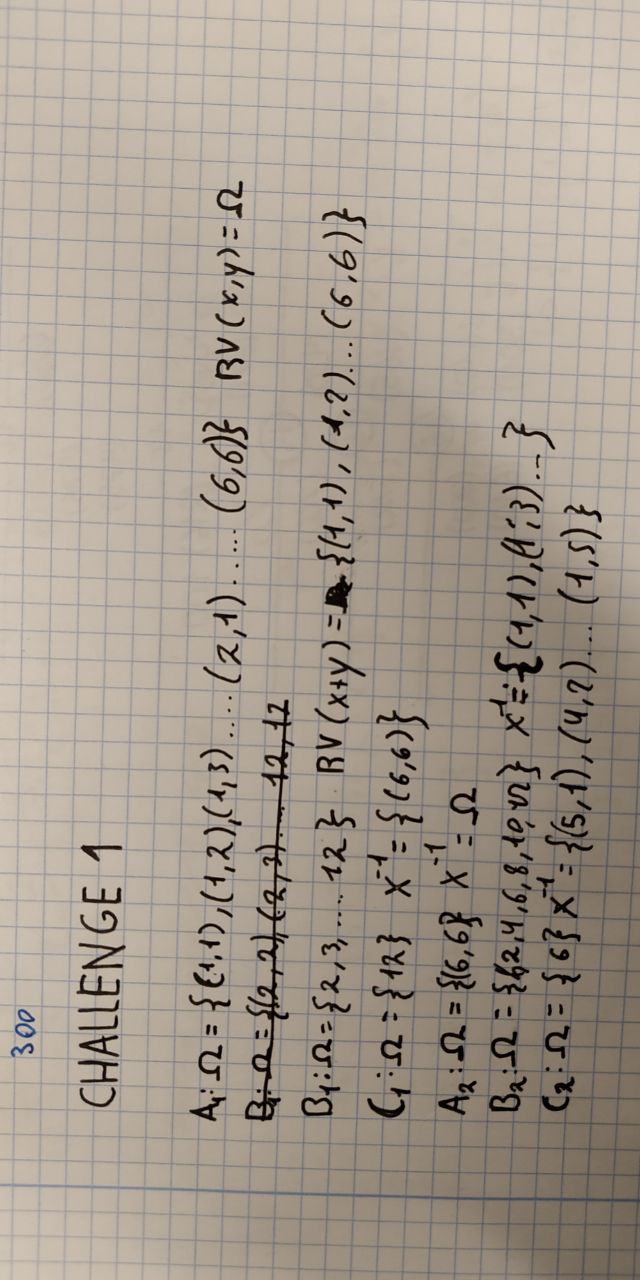 300
CHALLENGE 1
A₁: Ω = {(1,1),(1,2),(1,3).....(2,1)..... (6,6)} RV(x,y)=Ω
B₁: Ω = {(2,2),(2,3).... 12,12
B₁: Ω = {2,3,.... 12} RV(x+y) = {(1,1),(1,2)...(6,6)}
C₁: Ω = {12} X⁻¹ = {(6,6)}
A₂: Ω = {(6,6} X⁻¹ = Ω
B₂: Ω = {2,4,6,8,10,12} X⁻¹ = {(1,1),(1,3)...}
C₂: Ω = {6} X⁻¹ = {(5,1),(4,2)....(1,5)}